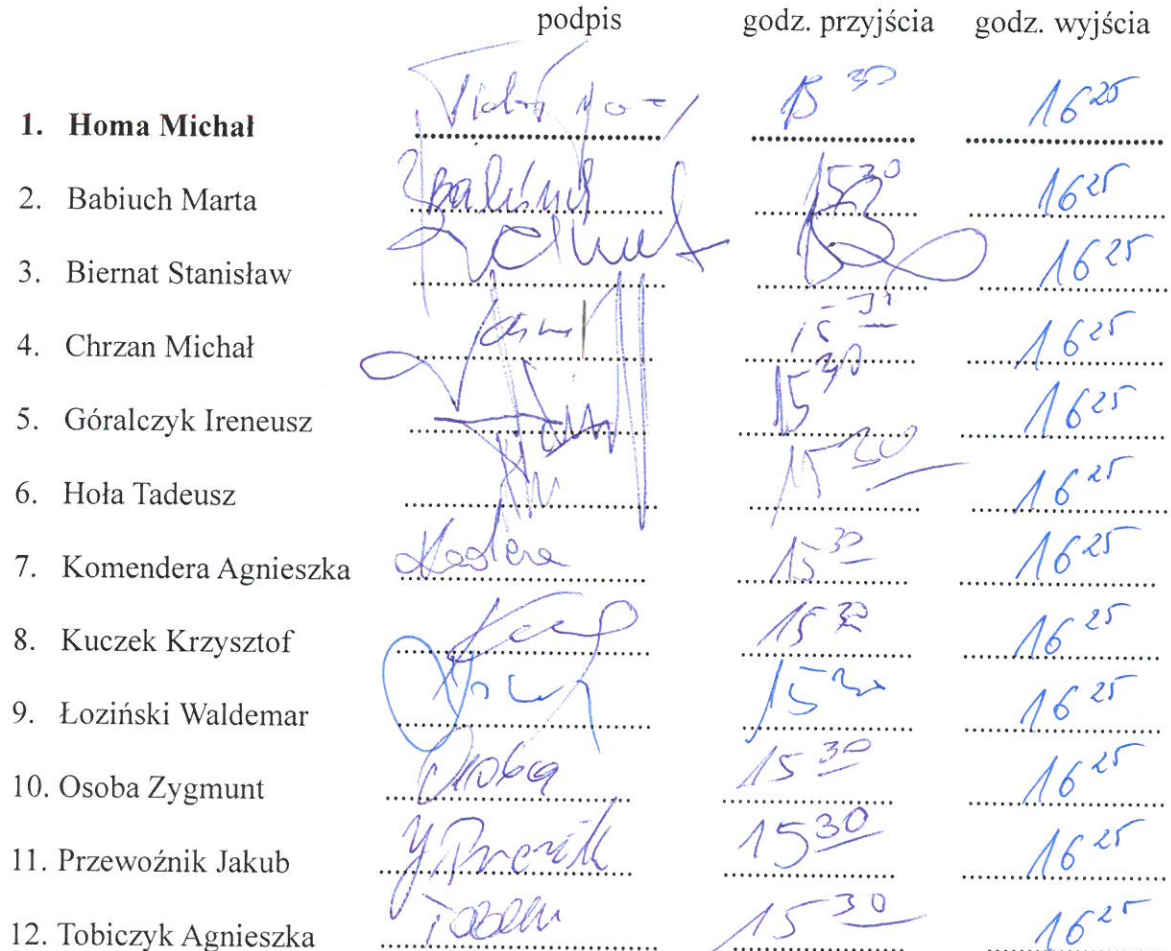 podpis godz. przyjścia godz. wyjścia
1. Homa Michał 15 30 16 25
2. Babiuch Marta 15 30 16 25
3. Biernat Stanisław 16 25
4. Chrzan Michał 16 25
5. Góralczyk Ireneusz 15 30 16 25
6. Hoła Tadeusz 15 30 16 25
7. Komendera Agnieszka 15 30 16 25
8. Kuczek Krzysztof 15 30 16 25
9. Łoziński Waldemar 15 30 16 25
10. Osoba Zygmunt Osoba 15 30 16 25
11. Przewoźnik Jakub 15 30 16 25
12. Tobiczyk Agnieszka 15 30 16 25